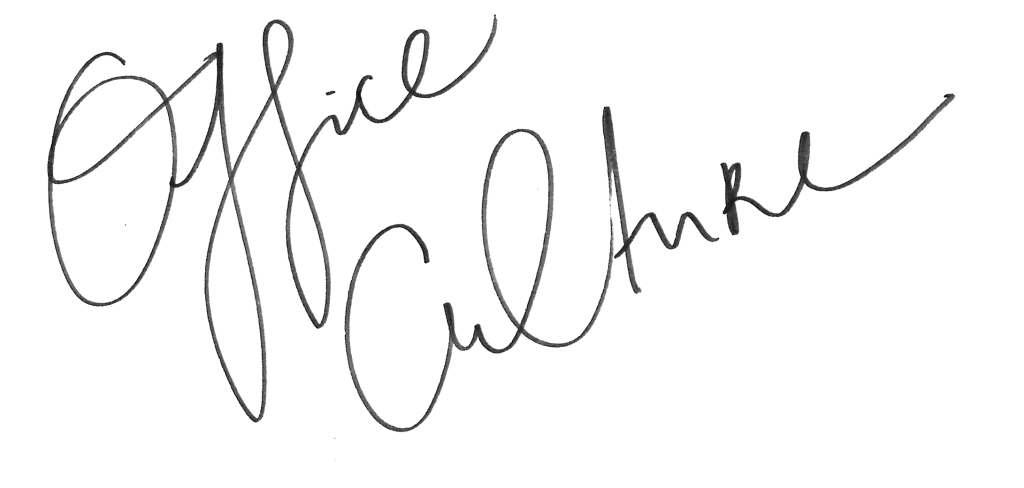 Office
Culture